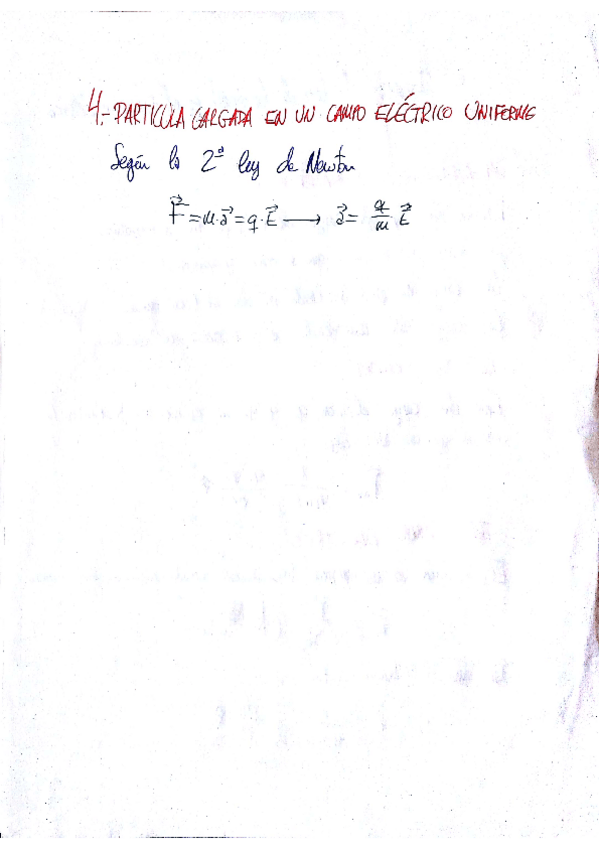 4.- PARTICULA CARGADA EN UN CAMPO ELÉCTRICO UNIFORME
Según la 2ª ley de Newton
F⃗ = m·a⃗ = q·E⃗ ⟶ a⃗ = q/m E⃗